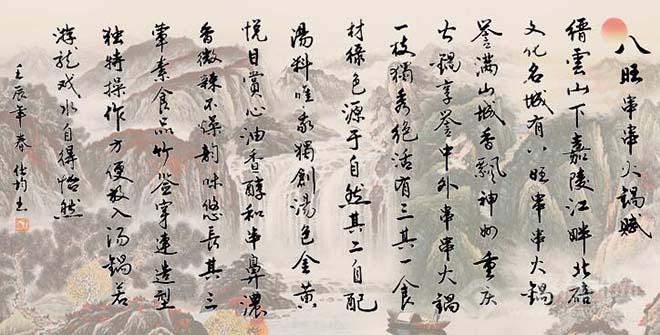 八旺串串火锅赋
缙雲山下嘉陵江畔北碚
文化名城有八旺串串火锅
誉满山城香飘神州重庆
火锅享誉中外串串火锅
一枝獨秀绝活有三其一食
材绿色源于自然其二自配
湯料唯我獨創湯色金黄
悦目賞心油香醇和串鼻濃
香微辣不燥韵味悠長其三
荤素食品竹签穿连造型
独特操作方便放入汤锅若
游龙戏水自得怡然
壬辰年春仕均书